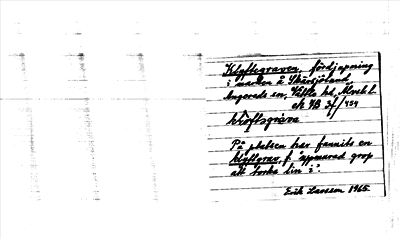 Klyftegraven, fördjupning
i marken å Skärsjöland,
Angereds sn, Vättle hd, Älvsb. l.
ek 7B 3f/
klöftsgräva
På platsen har funnits en
klyftgrav, f. uppmurad grop
att "torka lin i".
Erik Larsson 1965